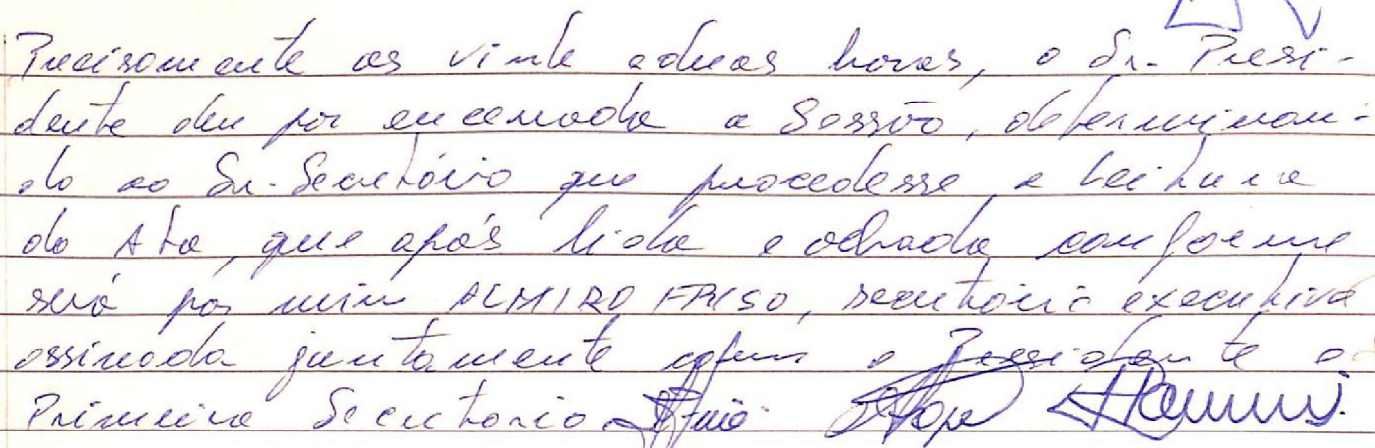 Precisamente as vinte e duas horas, o Sr. Presi-
dente deu por encerrada a Sessão, determinan-
do ao Sr. Secretário que procedesse a leitura
da Ata, que após lida e achada conforme
será por mim ALMIRO FRISO, secretário executivo
assinada juntamente com o Presidente e
Primeiro Secretario.